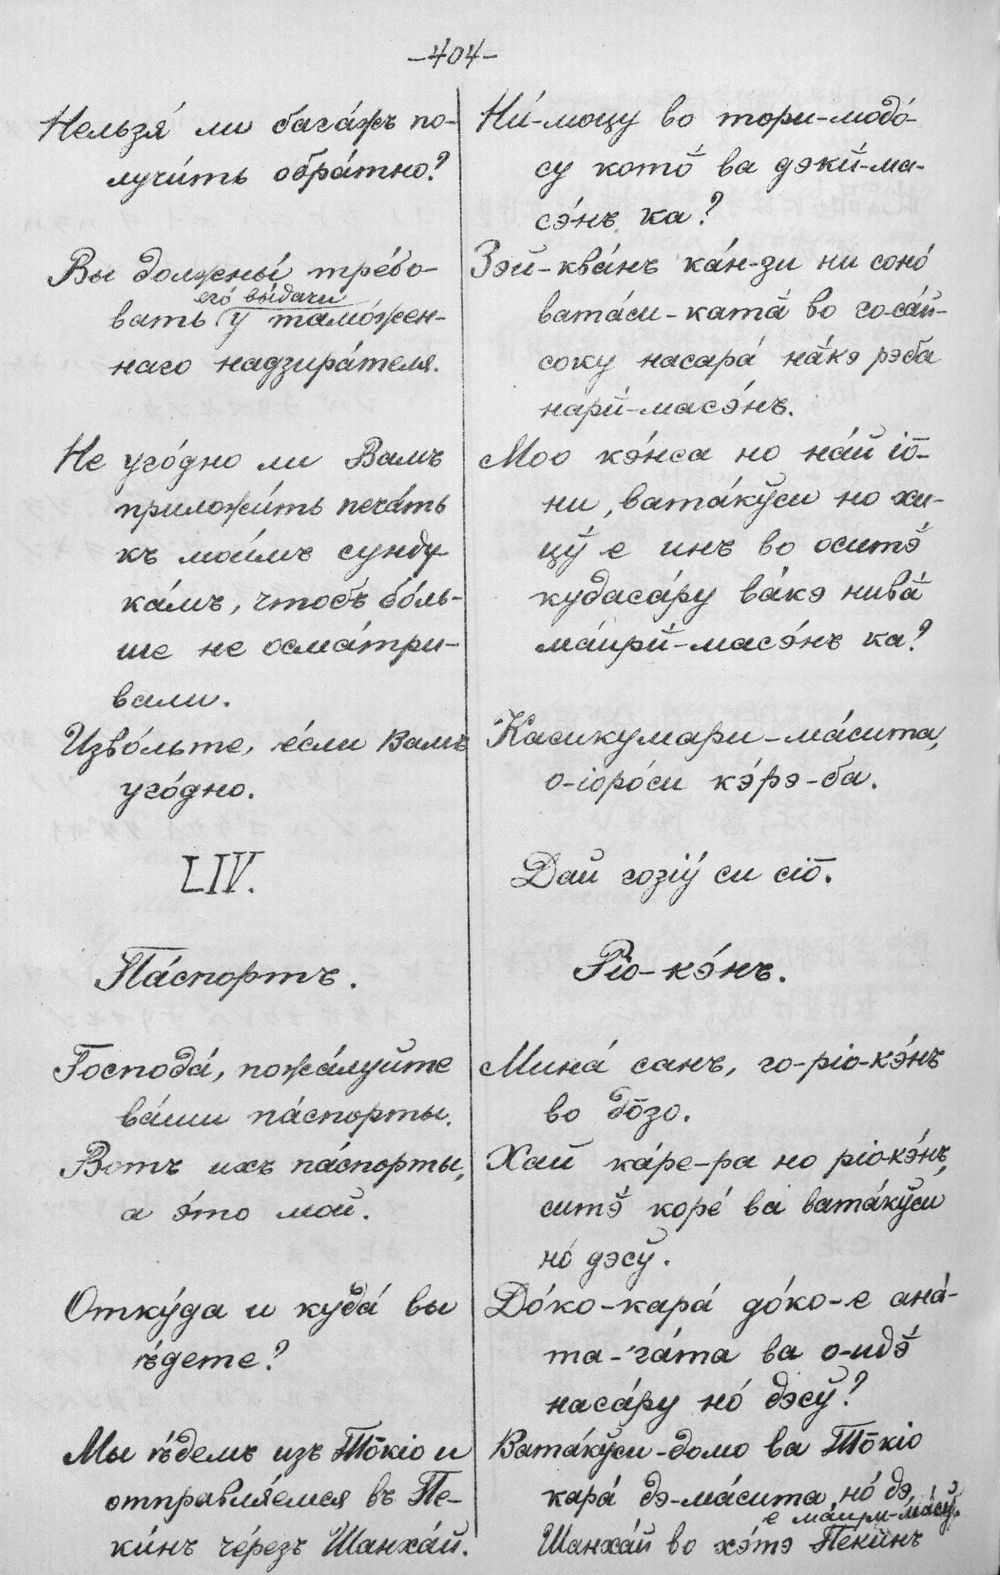 —404—
Нельзя́ ли бага́жъ по-
лучи́ть обра́тно?
Вы должны́ тре́бо-
его́ вы́дачи
вать у тамо́жен-
наго надзира́теля.
Не уго́дно ли Вамъ
приложи́ть печа́ть
къ мои́мъ сунду-
ка́мъ, чтобъ бо́ль-
ше не осма́три-
вали.
Изво́льте, е́сли Вамъ
уго́дно.
LIV.
Па́спортъ.
Господа́, пожа́луйте
ва́ши па́спорты.
Вотъ ихъ па́спорты,
а э́то мой.
Отку́да и куда́ вы
ѣ́дете?
Мы ѣ́демъ изъ То̄кіо и
отправля́емся въ Пе-
ки́нъ че́резъ Шанха́й.
Ни́-моцу во тори-модо́-
су кото̄́ ва дэки́-ма-
сэ́нъ ка?
Зэй-ква́нъ ка́н-зи ни соно́
вата́си-ката̄́ во го-са́й-
соку насара́ на́кэ рэба
нари́-масэ́нъ.
Моо кэ́нса но на́й іо̄-
ни, вата́кўси но хи-
цў́ е инъ во оситэ̆́
кудаса́ру ва́кэ нива̄́
ма́ири́-масэ́нъ ка?
Касикумари-ма́сита,
о-іоро́си кэ́рэ-ба.
Дай гозіу́ си сіо̄.
Ріо-кэ́нъ.
Мина́ санъ, го-ріо-кэ́нъ
во до̄зо.
Хай ка́ре-ра но ріо-кэ́нъ,
ситэ̆́ коре́ ва вата́кўси
но́ дэсў.
До́ко-кара́ до́ко-е ана́-
та-га́та ва о-идэ̆́
наса́ру но́ дэсў?
Вата́кўси-домо ва То̄кіо
кара́ дэ-ма́сита но́ дэ,
е маири-ма́сў.
Шанха́й во хэ́тэ Пеки́нъ